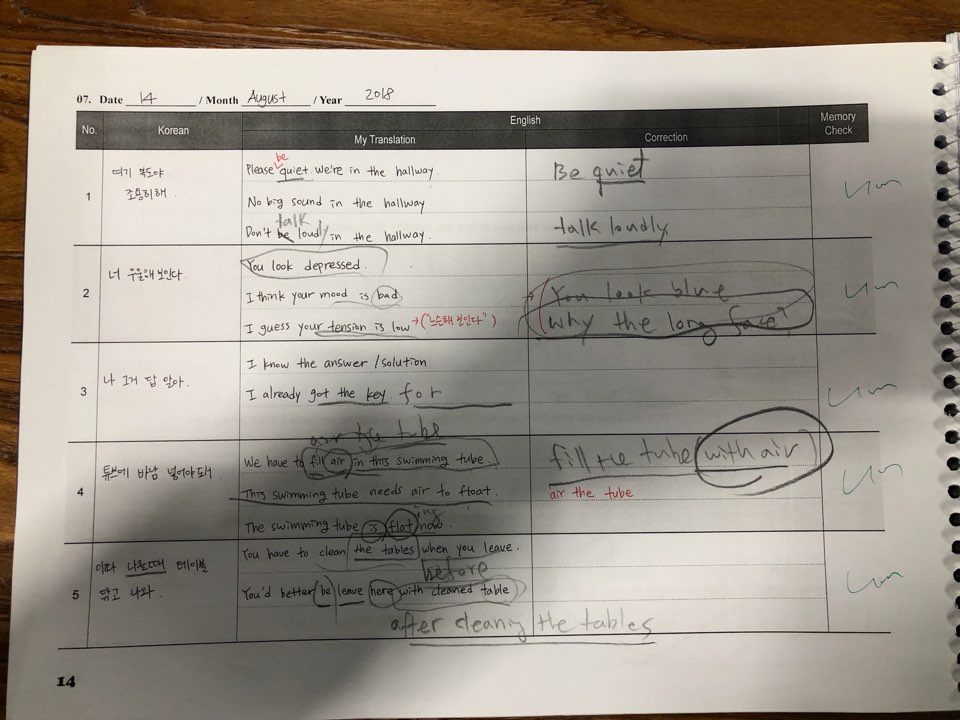 07. Date 14 / Month August / Year 2018
No.
Korean
English
My Translation
Correction
Memory Check
1
여기 복도야
조용히해.
be
Please quiet. We're in the hallway.
Be quiet
No big sound in the hallway
talk
Don't be loudly in the hallway.
talk loudly
2
너 우울해보인다.
You look depressed.
I think your mood is bad.
You look blue
I guess your tension is low → ("느슨해 보인다")
why the long face?
3
나 그거 답 알아.
I know the answer / solution
I already got the key. for
4
튜브에 바람 넣어야돼
air the tube
We have to fill air in this swimming tube.
fill the tube (with air)
This swimming tube needs air to float.
air the tube
The swimming tube is flat now.
5
이따 나올때 테이블
닦고 나와.
You have to clean the tables when you leave.
before
You'd better be leave here with cleaned table
after cleaning the tables
14